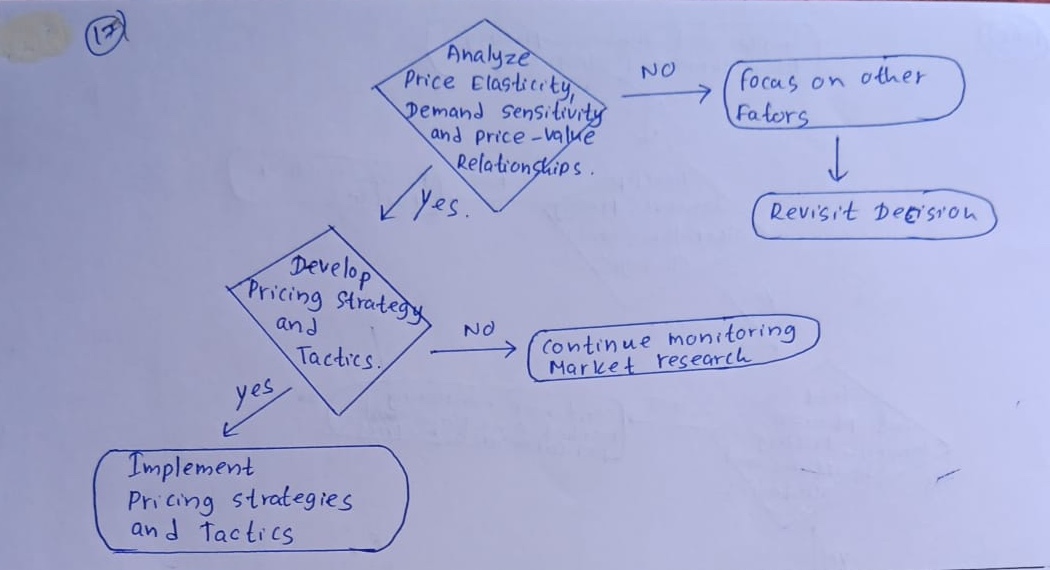 17
Analyze
Price Elasticity,
Demand Sensitivity
and Price-Value
Relationships.
NO
Focus on other
Fators
Revisit Decision
Yes.
Develop
Pricing Strategy
and
Tactics.
NO
Continue monitoring
Market research
yes
Implement
Pricing strategies
and Tactics